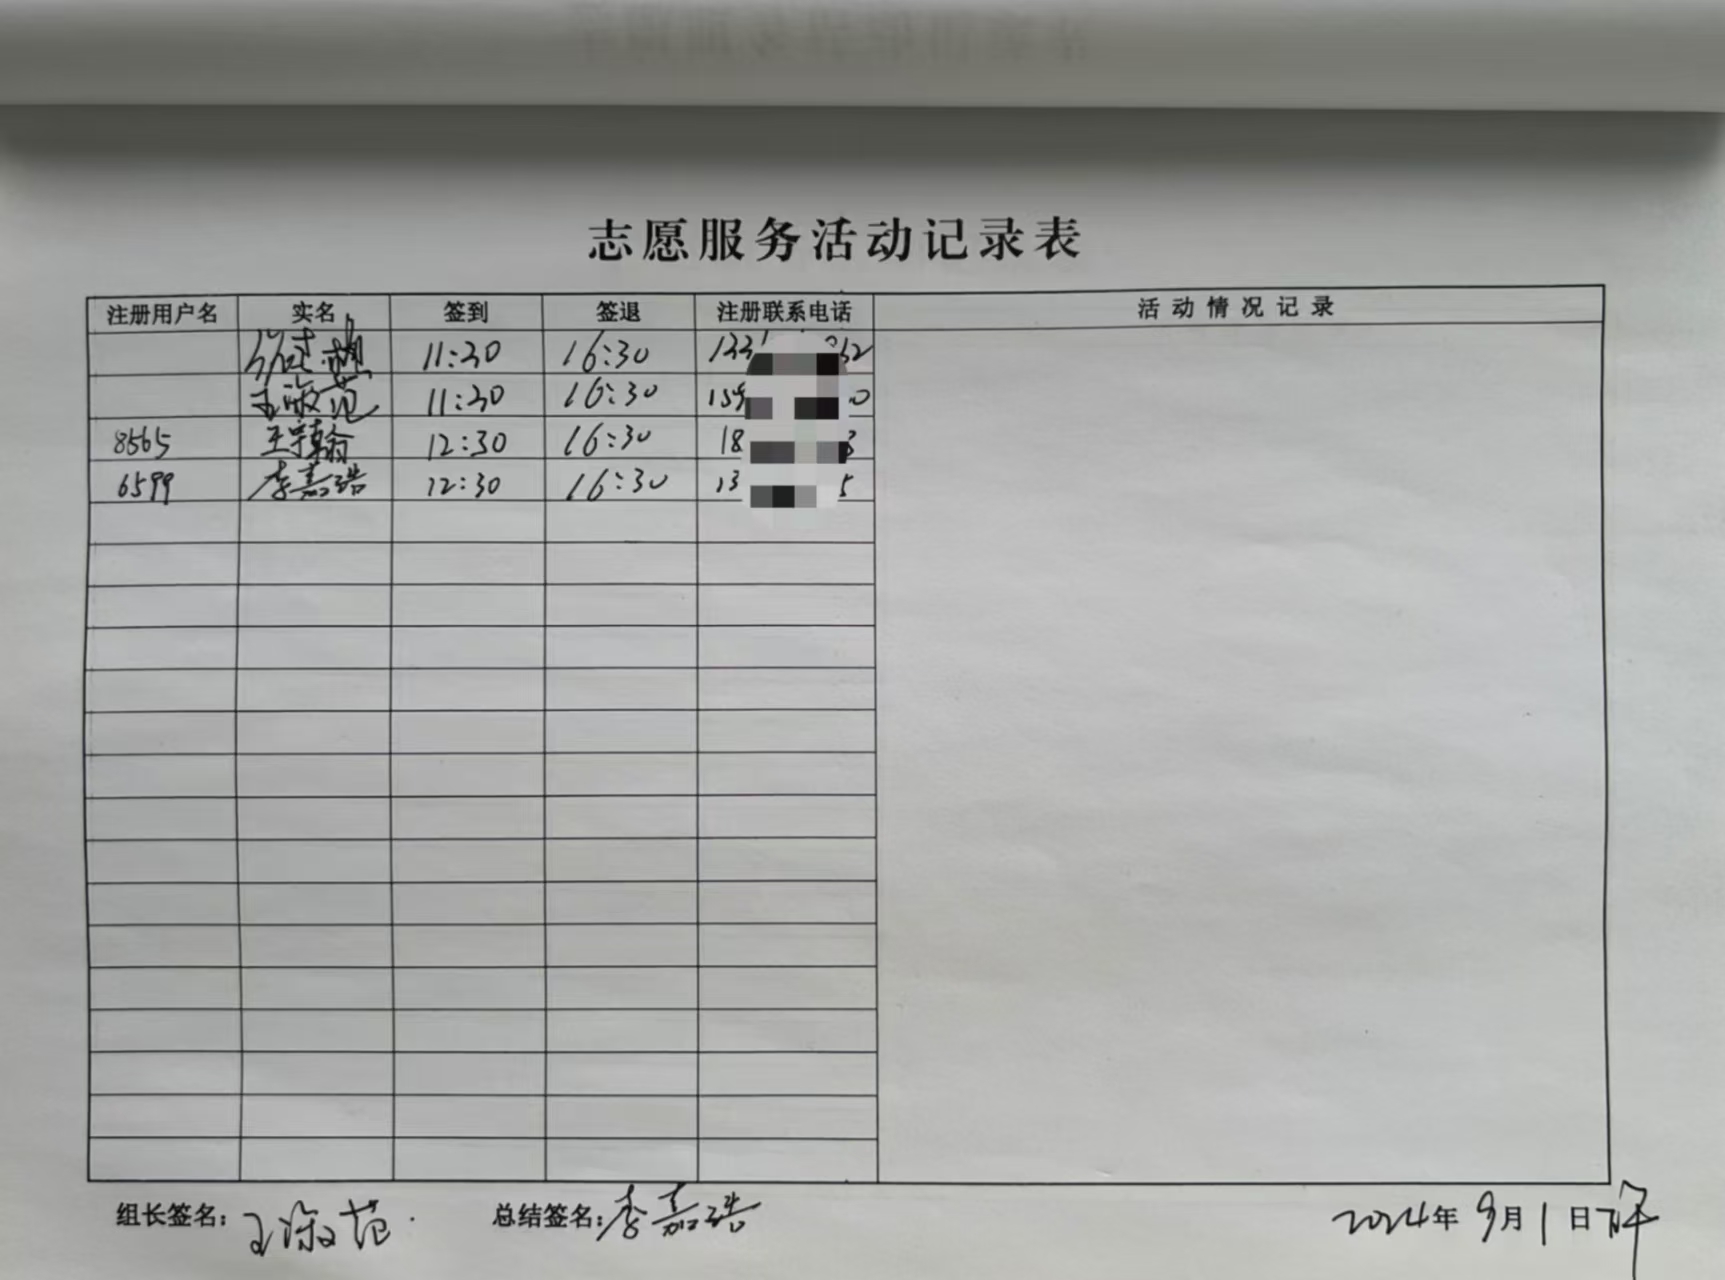 志愿服务活动记录表
注册用户名 实名 签到 签退 注册联系电话 活动情况记录
11:30 16:30
王淑范 11:30 16:30 159
8565 王宇翰 12:30 16:30 18 3
6599 李嘉浩 12:30 16:30 13 5
组长签名: 王淑范 总结签名: 李嘉浩 2024年9月1日下午